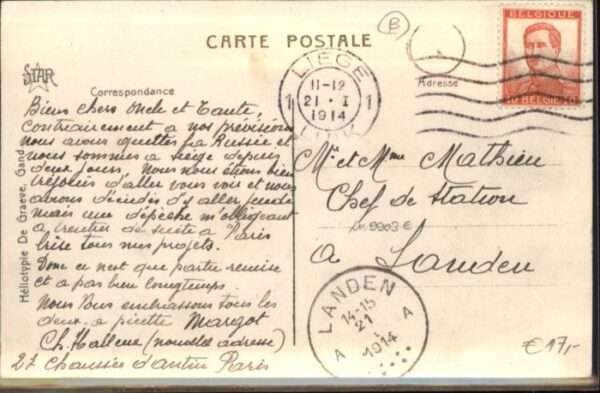 B
CARTE POSTALE
BELGIQUE
10 BELGIË 10
STAR
Correspondance
Adresse
LIÈGE
1 11-12 1
21 · I
1914
Biens chers oncle et Tante,
Contrairement à nos prévisions
nous avons quitté la Russie et
nous sommes à Liège depuis
deux jours, Nous nous étions bien
réjouis d'aller vous voir et nous
avions décidés d'y aller jeudi
mais une dépêche m'obligeant
à rentrer de suite à Paris
brise tous nos projets.
Donc ce n'est que partie remise
et à pas bien longtemps.
Nous Vous embrassons tous les
deux. a Margot
Ch. (nouvelle adresse)
27 Chaussée d'antin Paris
Mr et Mme Mathieu
Chef de Station
9903 €
à Landen
Héliotypie De Graeve, Gand
LANDEN
14-15
21
1914
A A
€17,-